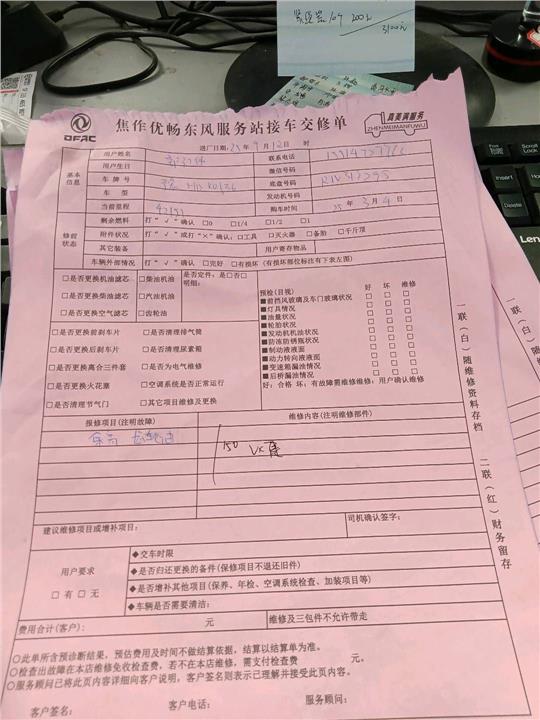 200元
3100元
DFAC
焦作优畅东风服务站接车交修单
真美满服务
ZHENMEIMANFUWU
进厂日期: 年 月12日 时
基本信息
用户姓名 联系电话
用户生日 微信号码
车牌号 底盘号码
车型 发动机号码
当前里程 购车时间 25年3月4日
修前状态
剩余燃料 打“√”确认 □0 □1/4 □1/2 □1
附件状况 打“√”或打“×”确认：□工具 □灭火器 □备胎 □千斤顶
其它装备 用户寄存物品
车辆外部情况 打“√”确认 □完好 □有损坏（有损坏部位标注有下表左图）
□是否更换机油滤芯 □柴油机油
□是否更换柴油滤芯 □汽油机油
□是否更换空气滤芯 □齿轮油
是否定件：是□否□
明细:
□是否更换前刹车片 □是否清理排气筒
□是否更换后刹车片 □是否清理尿素箱
□是否更换离合三件套 □是否为电气维修
□是否更换火花塞 □空调系统是否正常运行
□是否清理节气门 □其它项目维修及更换
预检(目视) 好 坏 维修
■前挡风玻璃及车门玻璃状况 □ □ □
■灯具情况 □ □ □
■油量状况 □ □ □
■轮胎状况 □ □ □
■发动机机油状况 □ □ □
■防冻防锈瓶状况 □ □ □
■制动液液面 □ □ □
■动力转向液液面 □ □ □
■变速箱漏油情况 □ □ □
■后桥漏油情况 □ □ □
好：合格 坏：有故障需维修维修：用户确认维修
一联（白）随维修资料存档
二联（红）财务留存
报修项目(注明故障) 维修内容(注明维修部件)
150
建议维修项目或增补项目: 司机确认签字:
用户要求
□有□无
◆交车时限
◆是否归还更换的备件(保修项目不退还旧件)
◆是否增补其他项目(保养、年检、空调系统检查、加装项目等)
◆车辆是否需要清洁:
费用合计(客户): 元 维修及三包件不允许带走
○此单所含预诊断结果，预估费用及时间不做结算依据，结算以结算单为准。
○检查出故障在本店维修免收检查费，若不在本店维修，需支付检查费 元。
○服务顾问已将此页内容详细向客户说明，客户签名则表示已理解并接受此页内容。
客户签名: 客户电话: 服务顾问: